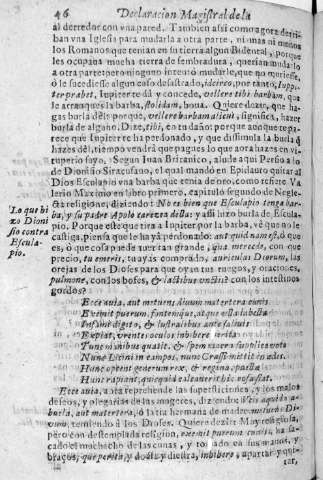 46 Declaracion Magistral de la
al derredor con vna pared. Tambien assi como agora derri-
ban vna Iglesia para mudarla a otra parte, ni mas ni menos
los Romanos que tenian en su tierra algun Bidental, porque
les ocupaua mucha tierra de sembradura, querian mudarlo
a otra parte: pero ninguno intentó mudarle, que no muriesse,
ò le sucediesse algun caso desastrado, idcirco, por tanto, Iuppi-
ter præbet, Iupiter te dá y concede, vellere tibi barbam, que
le arranques la barba, stolidam, boua. Quiere dezir, que ha-
gas burla dèl: porque, vellere barbam alicui, significa, hazer
burla de alguno. Dize, tibi, en tu daño: porque aunque te pa-
rece que Iupiter te ha perdonado, y que dissimula la burla q̃
hazes dèl, tiempo vendrá que pagues lo que aora hazes en vi-
tuperio suyo. Segun Iuan Britanico, alude aqui Persio a lo
de Dionisio Siracusano, el qual mandó en Epidauro quitar al
Dios Esculapio vna barba que tenia de oro, como refiere Va-
lerio Maximo en libro primero, capitulo segundo de Negle-
cta religione, diziendo: No es bien que Esculapio tenga bar-
ba, y su padre Apolo carezca della: y assi hizo burla de Escula-
pio. Porque este que tira a Iupiter por la barba, vè que no le
castiga, piensa que le ha perdonado: aut quid nam est, ò que
es, ò que cosa puede ser tan grande, qua mercede, con que
precio, tu emeris, tu ayas comprado, auriculas Deorum, las
orejas de los Dioses para que oyan tus ruegos, y oraciones,
pulmone, con los bofes, & lactibus vnctis? con los intestinos
gordos?
Lo que hi
zo Dioni
sio contra
Escula-
pio.
Ecce auia, aut metuens diuum matertera cunis
Exemit puerum, frontemque, atque vda labella
Infami digito, & lustralibus ante saliuis
Expiat, vrentes oculos inhibere perita.
Tunc manibus quatit, & spem macram supplice voto
Nunc Licini in campos, nunc Crassi mittit in ædes.
Hunc optent generum rex, & regina, puellæ
Hunc rapiant, quicquid calcauerit hic rosa fiat.
Ecce auia, aora reprehende las supersticiones, y los malos
deseos, y plegarias de las mugeres, diziendo: Veis aqui la a-
buela, aut matertera, ò la tia hermana de madre, metuens Di-
uum, temiendo a los Dioses. Quiere dezir: Muy religiosa,
pero con destemplada religion, exemit puerum cunis, ha sa-
cado el muchacho de las cunas, y tomado en sus manos, y
braços, que perita, y docta, y diestra, inhibere, apartar, y qui-
tar,